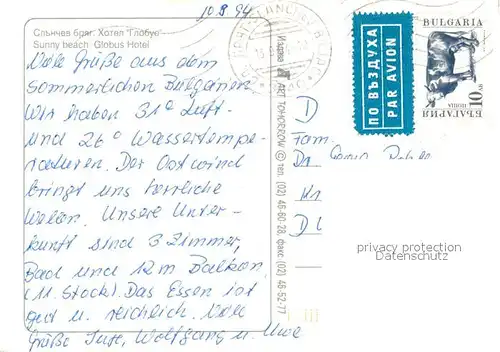 10.8.94
Слънчев бряг. Хотел "Глобус"
Sunny beach Globus Hotel
Viele Grüße aus dem
sommerlichen Bulgarien.
Wir haben 31° Luft-
und 26° Wassertempe-
raturen. Der Ostwind
bringt uns herrliche
Wellen. Unsere Unter-
kunft sind 3 Zimmer,
Bad und 12m Balkon
(11. Stock). Das Essen ist
gut u. reichlich. Viele
Grüße Jute, Wolfgang u. Uwe
Издава ART TOMORROW © тел. (02) 46-60-28 факс (02) 46-52-77
ПО ВЪЗДУХА
PAR AVION
BULGARIA
10
БЪЛГАРИЯ
D
Fam.
Dr.
D
privacy protection
Datenschutz